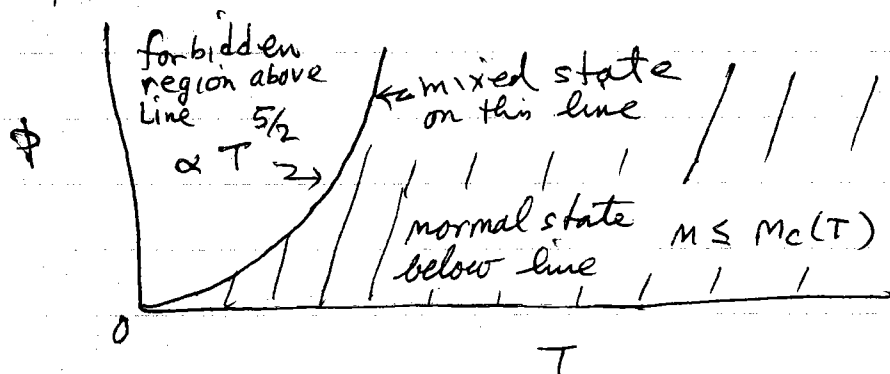 forbidden
region above
line
∝ T^5/2
mixed state
on this line
p
normal state
below line
n ≤ n_c(T)
0
T